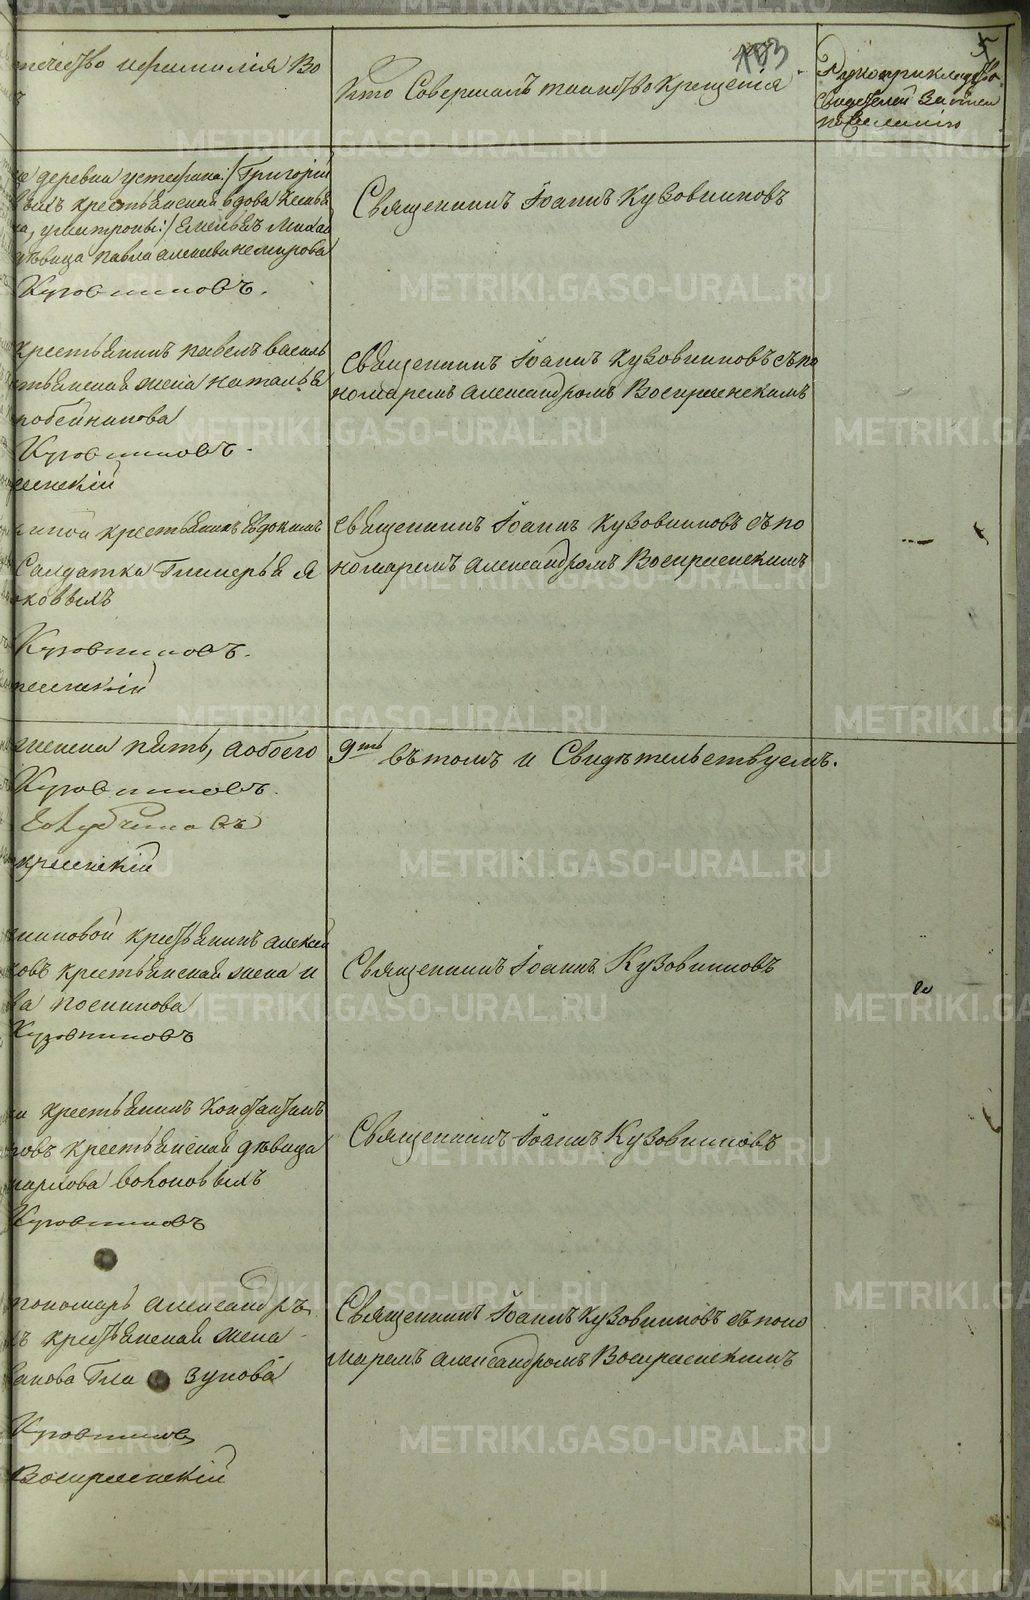 течество и фамилія во
Кто Совершалъ таинство Крещенія
103
5
Рукоприкладство
Свидетелей записи
по желанію
деревни
Григорій
крестьянская вдова
девица павла алексеева немирова
Кузовниковъ.
Священникъ Іоаннъ Кузовниковъ
крестьянинъ павелъ василь
стьянская жена наталья
робейникова
Кузовниковъ.
сенскій
Священникъ Іоаннъ Кузовниковъ съ по
номаремъ александромъ Воскресенскимъ
крестьянинъ Евдокимъ
Салдатка Гликерья я
ковыхъ
Кузовниковъ.
ресенскій
Священникъ Іоаннъ Кузовниковъ съ по
номаремъ Александромъ Воскресенскимъ
женска пять, а обоего 9ть въ томъ и Свидѣтельствуемъ.
Кузовниковъ.
кресенскій
никовой крестьянинъ алексей
ковъ крестьянская жена и
ва посникова
Кузовниковъ
Священникъ Іоаннъ Кузовниковъ
крестьянинъ константинъ
ковъ крестьянская дѣвица
маркова
Кузовниковъ
Священникъ Іоаннъ Кузовниковъ
пономарь александръ
ъ крестьянская жена
ванова Гла зунова
Кузовниковъ
Воскресенскій
Священникъ Іоаннъ Кузовниковъ съ поно
маремъ александромъ Воскресенскимъ
METRIKI.GASO-URAL.RU